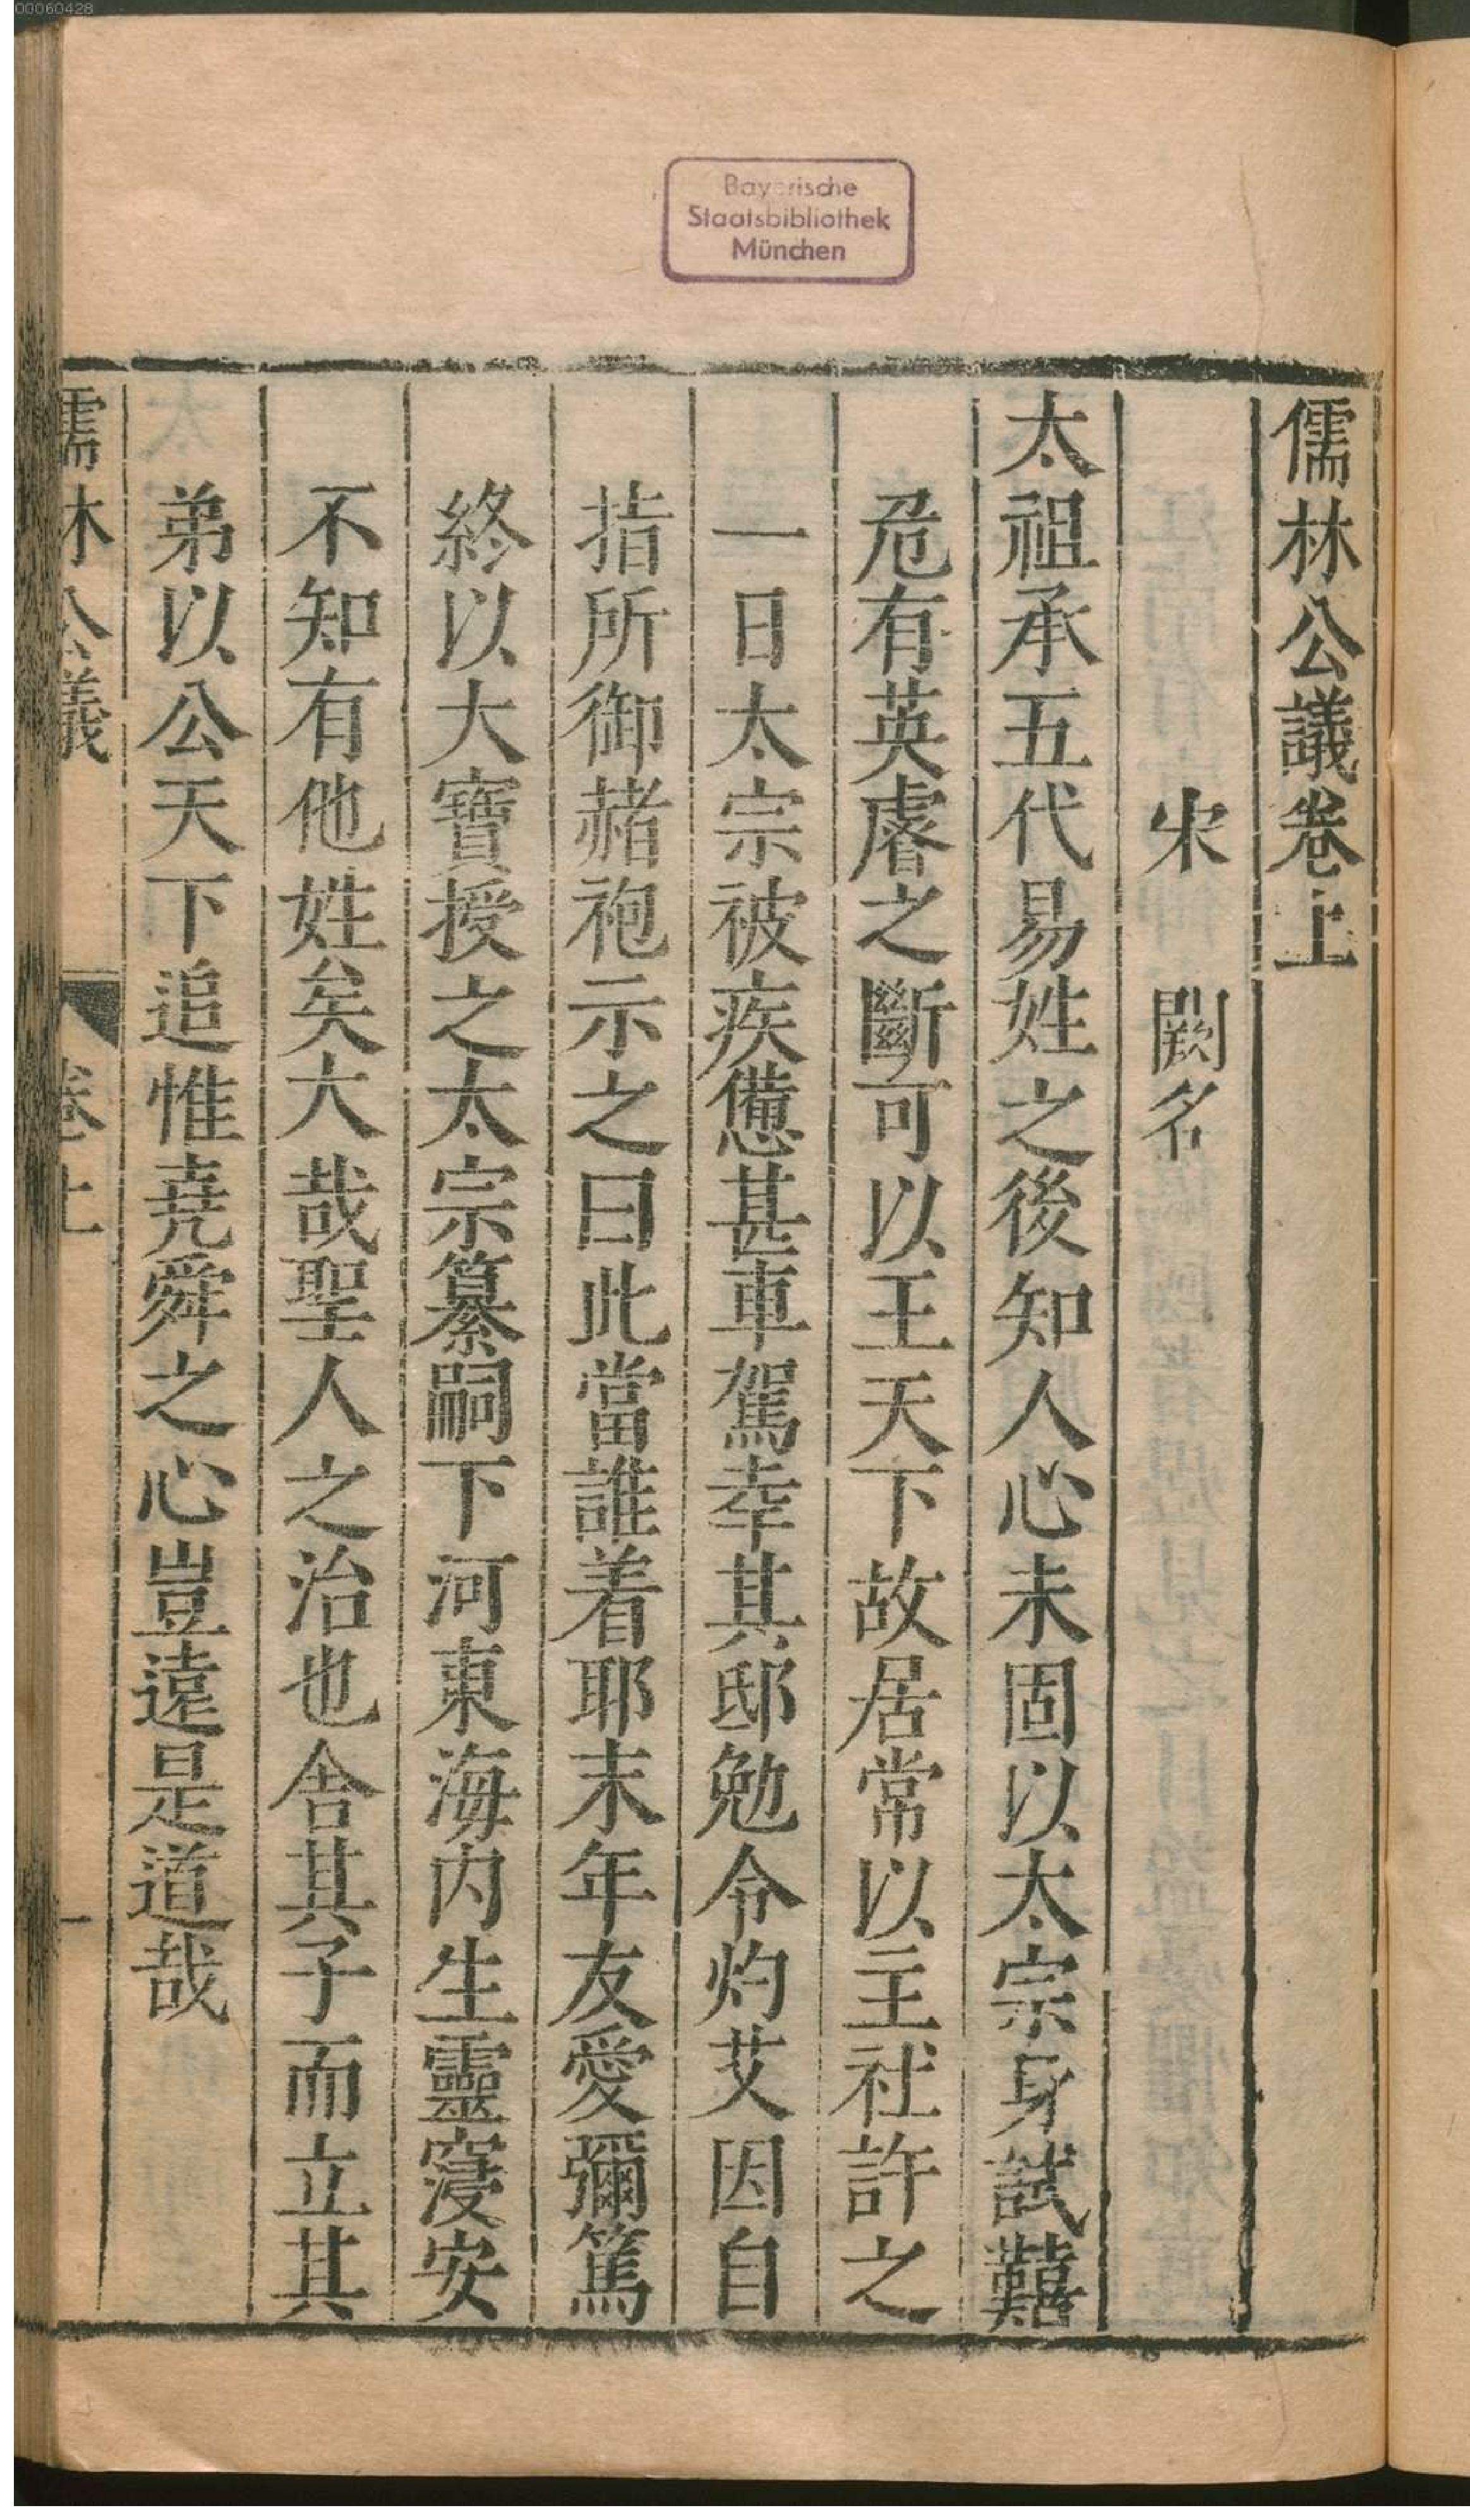 00060428
Bayerische
Staatsbibliothek
München
儒林公議卷上
宋　闕名
太祖承五代易姓之後知人心未固以太宗身試囏
危有英睿之斷可以王天下故居常以主社許之
一日太宗被疾憊甚車駕幸其邸勉令灼艾因自
指所御赭袍示之曰此當誰着耶末年友愛彌篤
終以大寶授之太宗纂嗣下河東海内生靈寖安
不知有他姓矣大哉聖人之治也舍其子而立其
弟以公天下追惟堯舜之心豈遠是道哉
儒林公議　卷上　一